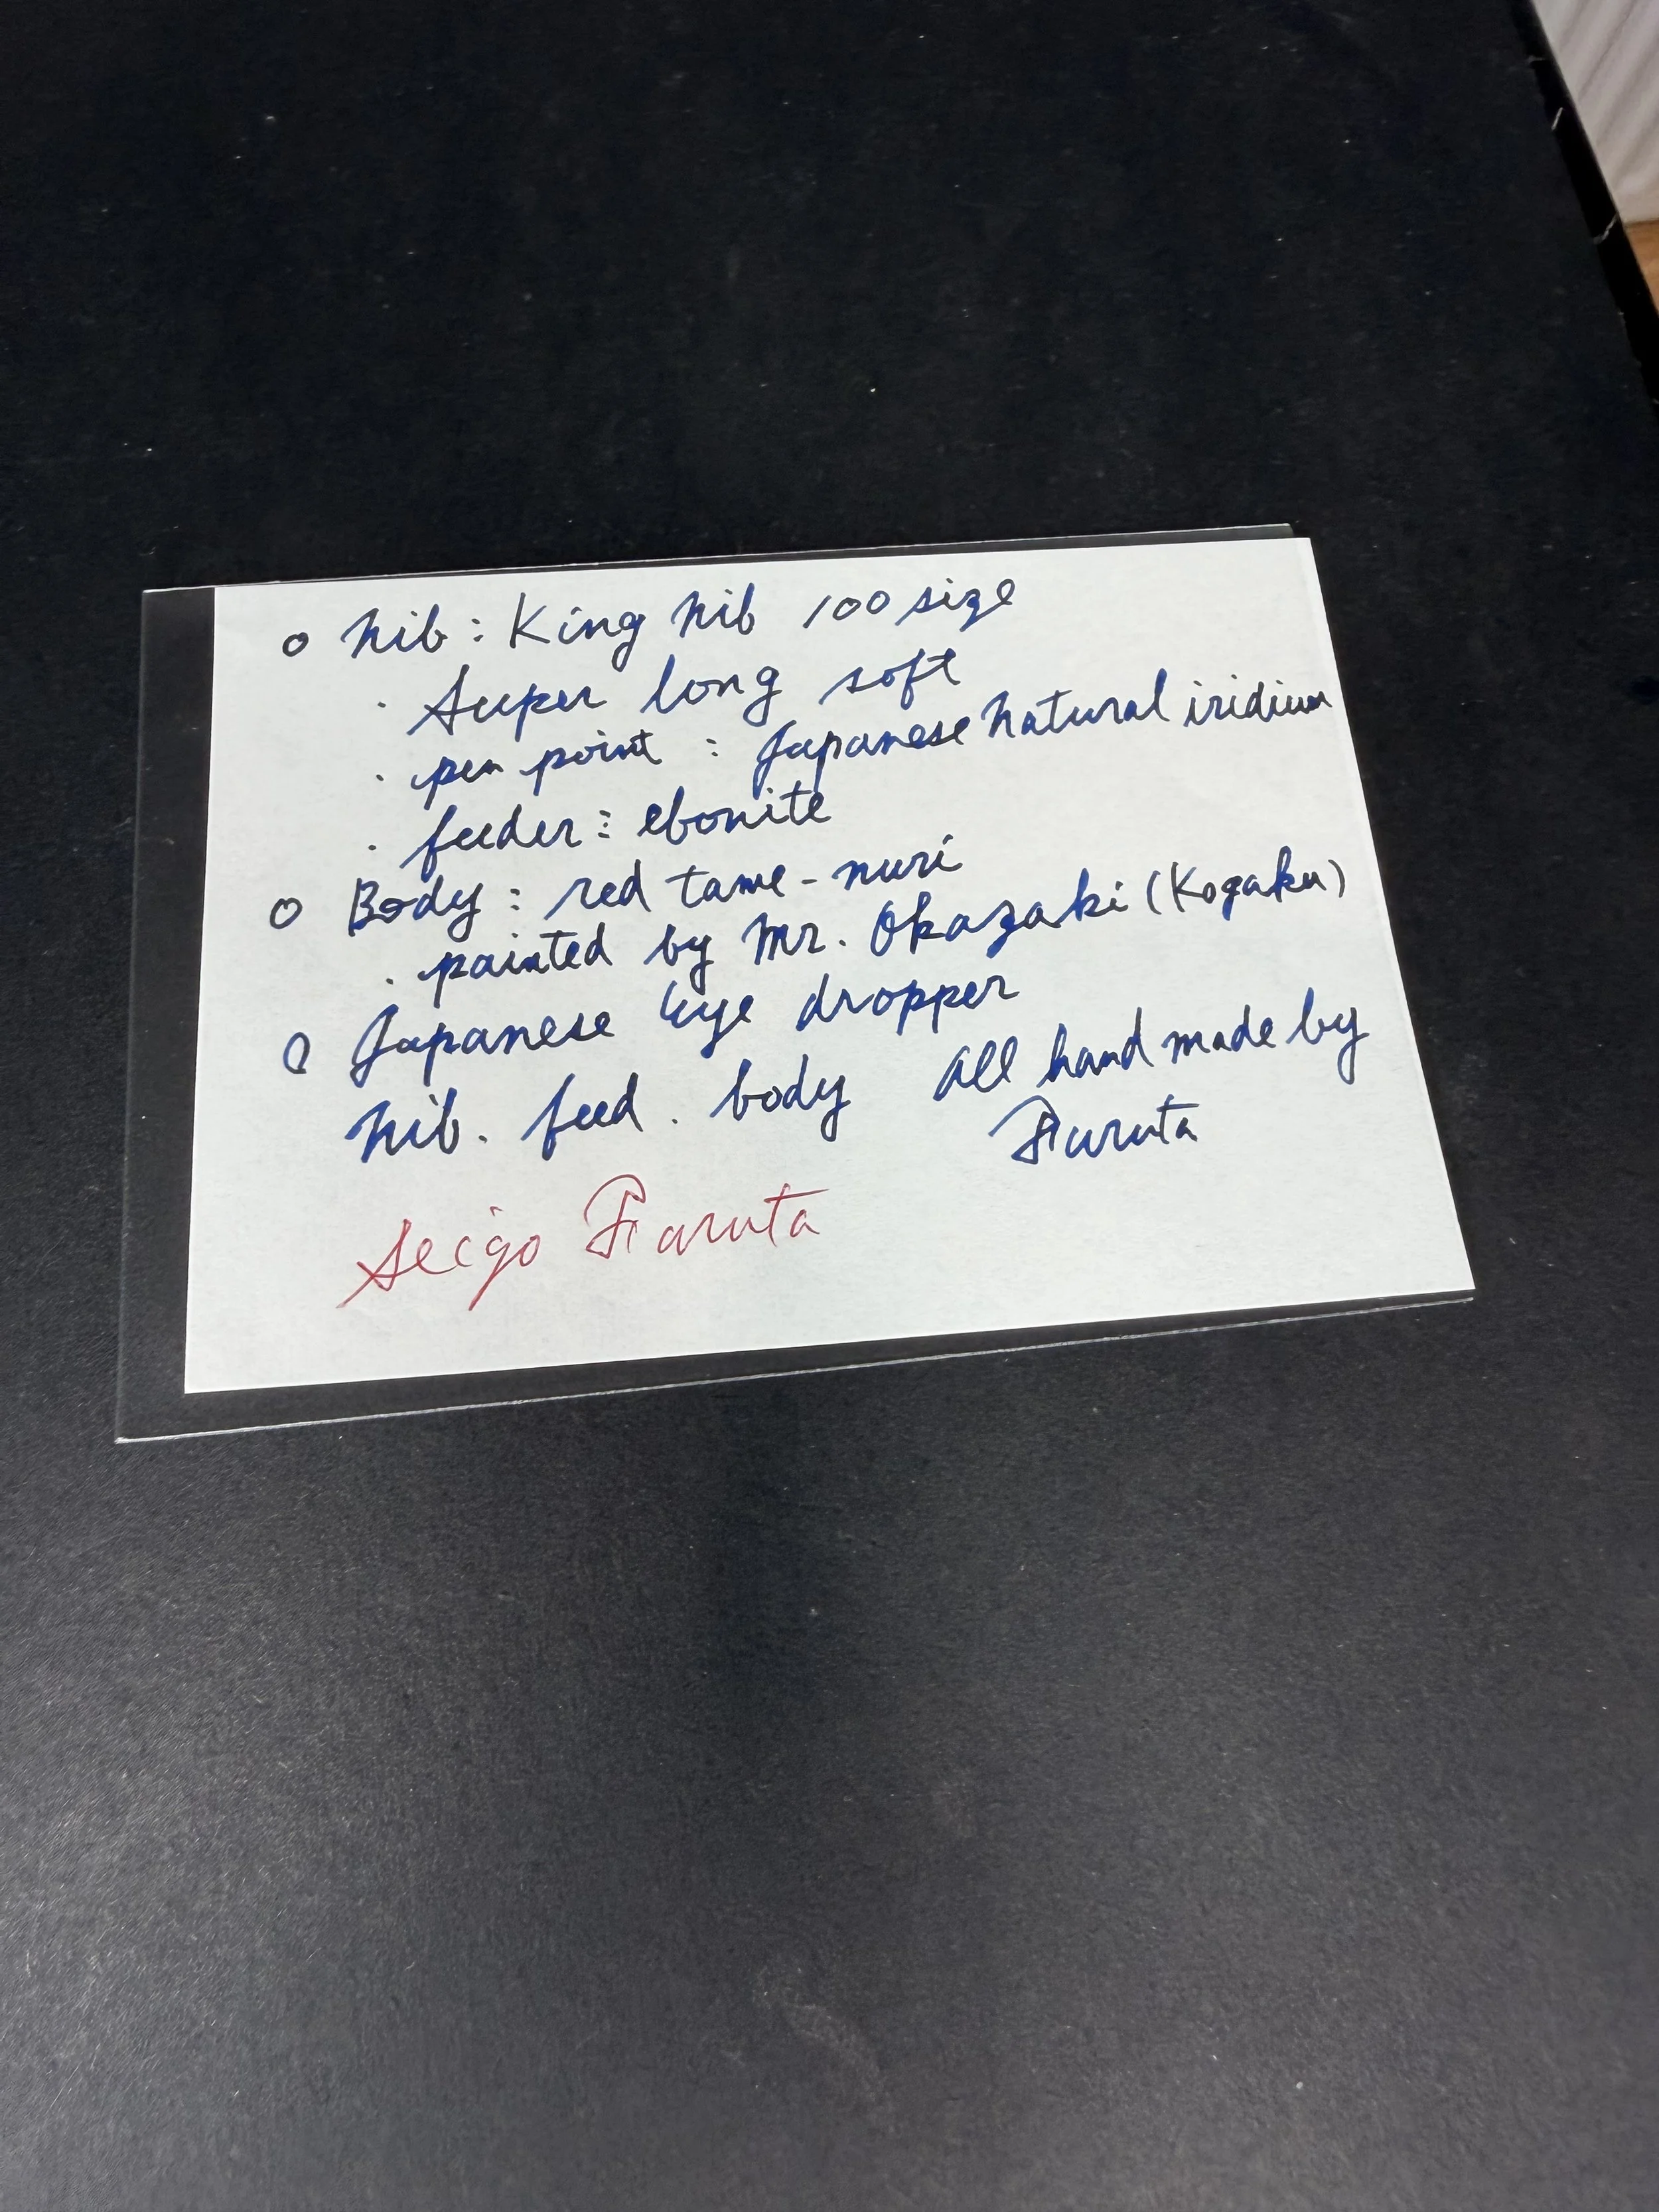 ○ Nib : King Nib 100 size
・ Super long soft
・ pen point : Japanese Natural iridium
・ feeder : ebonite
○ Body : red tame-nuri
・ painted by Mr. Okazaki (Kogaku)
○ Japanese Eye dropper
Nib. feed. body All hand made by
Furuta
Seigo Furuta